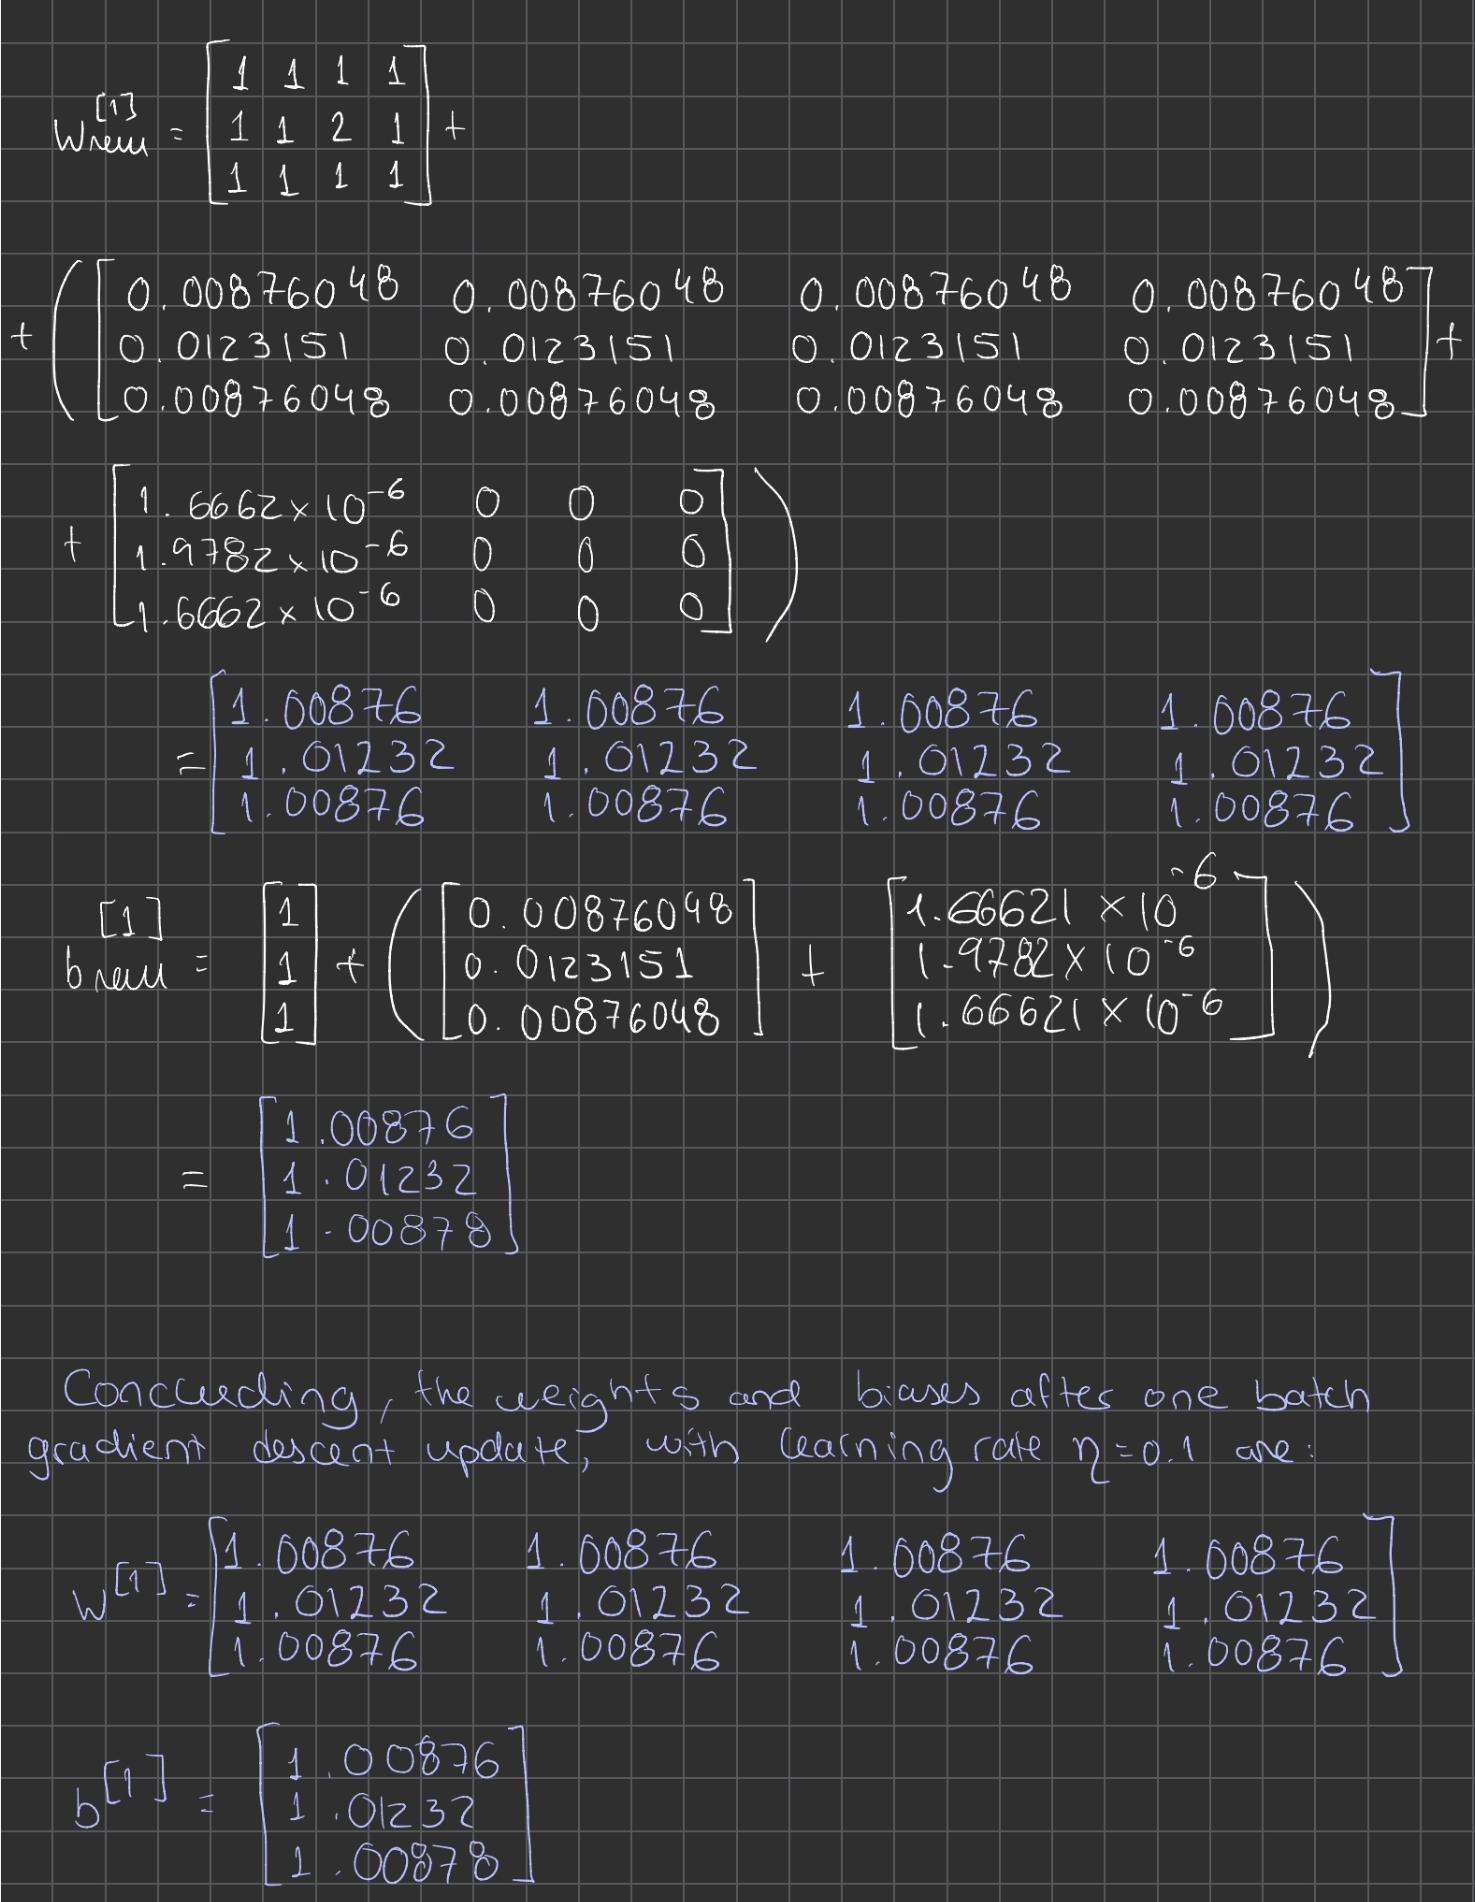 W_new^[1] = [ 1 1 1 1
1 1 2 1
1 1 1 1 ] +
+ ( [ 0.00876048 0.00876048 0.00876048 0.00876048
0.0123151 0.0123151 0.0123151 0.0123151
0.00876048 0.00876048 0.00876048 0.00876048 ] +
+ [ 1.6662 × 10^-6 0 0 0
1.9782 × 10^-6 0 0 0
1.6662 × 10^-6 0 0 0 ] )
= [ 1.00876 1.00876 1.00876 1.00876
1.01232 1.01232 1.01232 1.01232
1.00876 1.00876 1.00876 1.00876 ]
b_new^[1] = [ 1 1 1 ] + ( [ 0.00876048 0.0123151 0.00876048 ] + [ 1.66621 × 10^-6 1.9782 × 10^-6 1.66621 × 10^-6 ] )
= [ 1.00876
1.01232
1.00878 ]
Concluding, the weights and biases after one batch
gradient descent update, with learning rate η=0.1 are:
W^[1] = [ 1.00876 1.00876 1.00876 1.00876
1.01232 1.01232 1.01232 1.01232
1.00876 1.00876 1.00876 1.00876 ]
b^[1] = [ 1.00876
1.01232
1.00878 ]